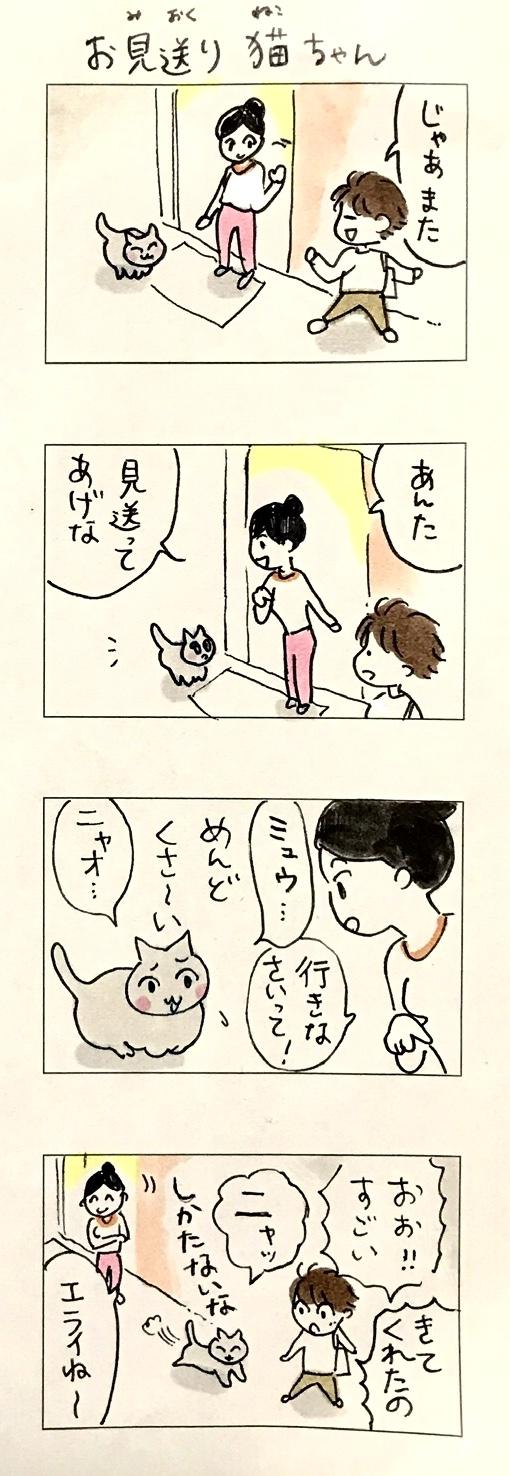 み おく ねこ
お見送り 猫ちゃん
じゃあまた
あんた
見送って
あげな
ミュウ…
行きな
さいって!
めんど
くさ〜い
ニャオ…
おぉ!!
すごい
きて
くれたの
ニャッ
しかたないな
エライね〜